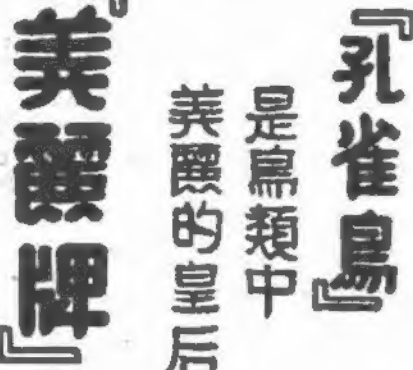 『孔雀鳥』
是鳥類中
美麗的皇后
『美麗牌』